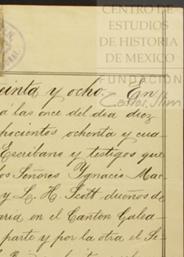 CENTRO DE
ESTUDIOS
DE HISTORIA
DE MEXICO
FUNDACIÓN
Carlos Slim
uinta y ocho. En
á las once del dia diez
hocientos ochenta y cua
Escribano y testigos que
los Señores Ygnacio Mac
y L. H. Scott dueños de
aria en el Canton Galea
parte y por la otra el Se